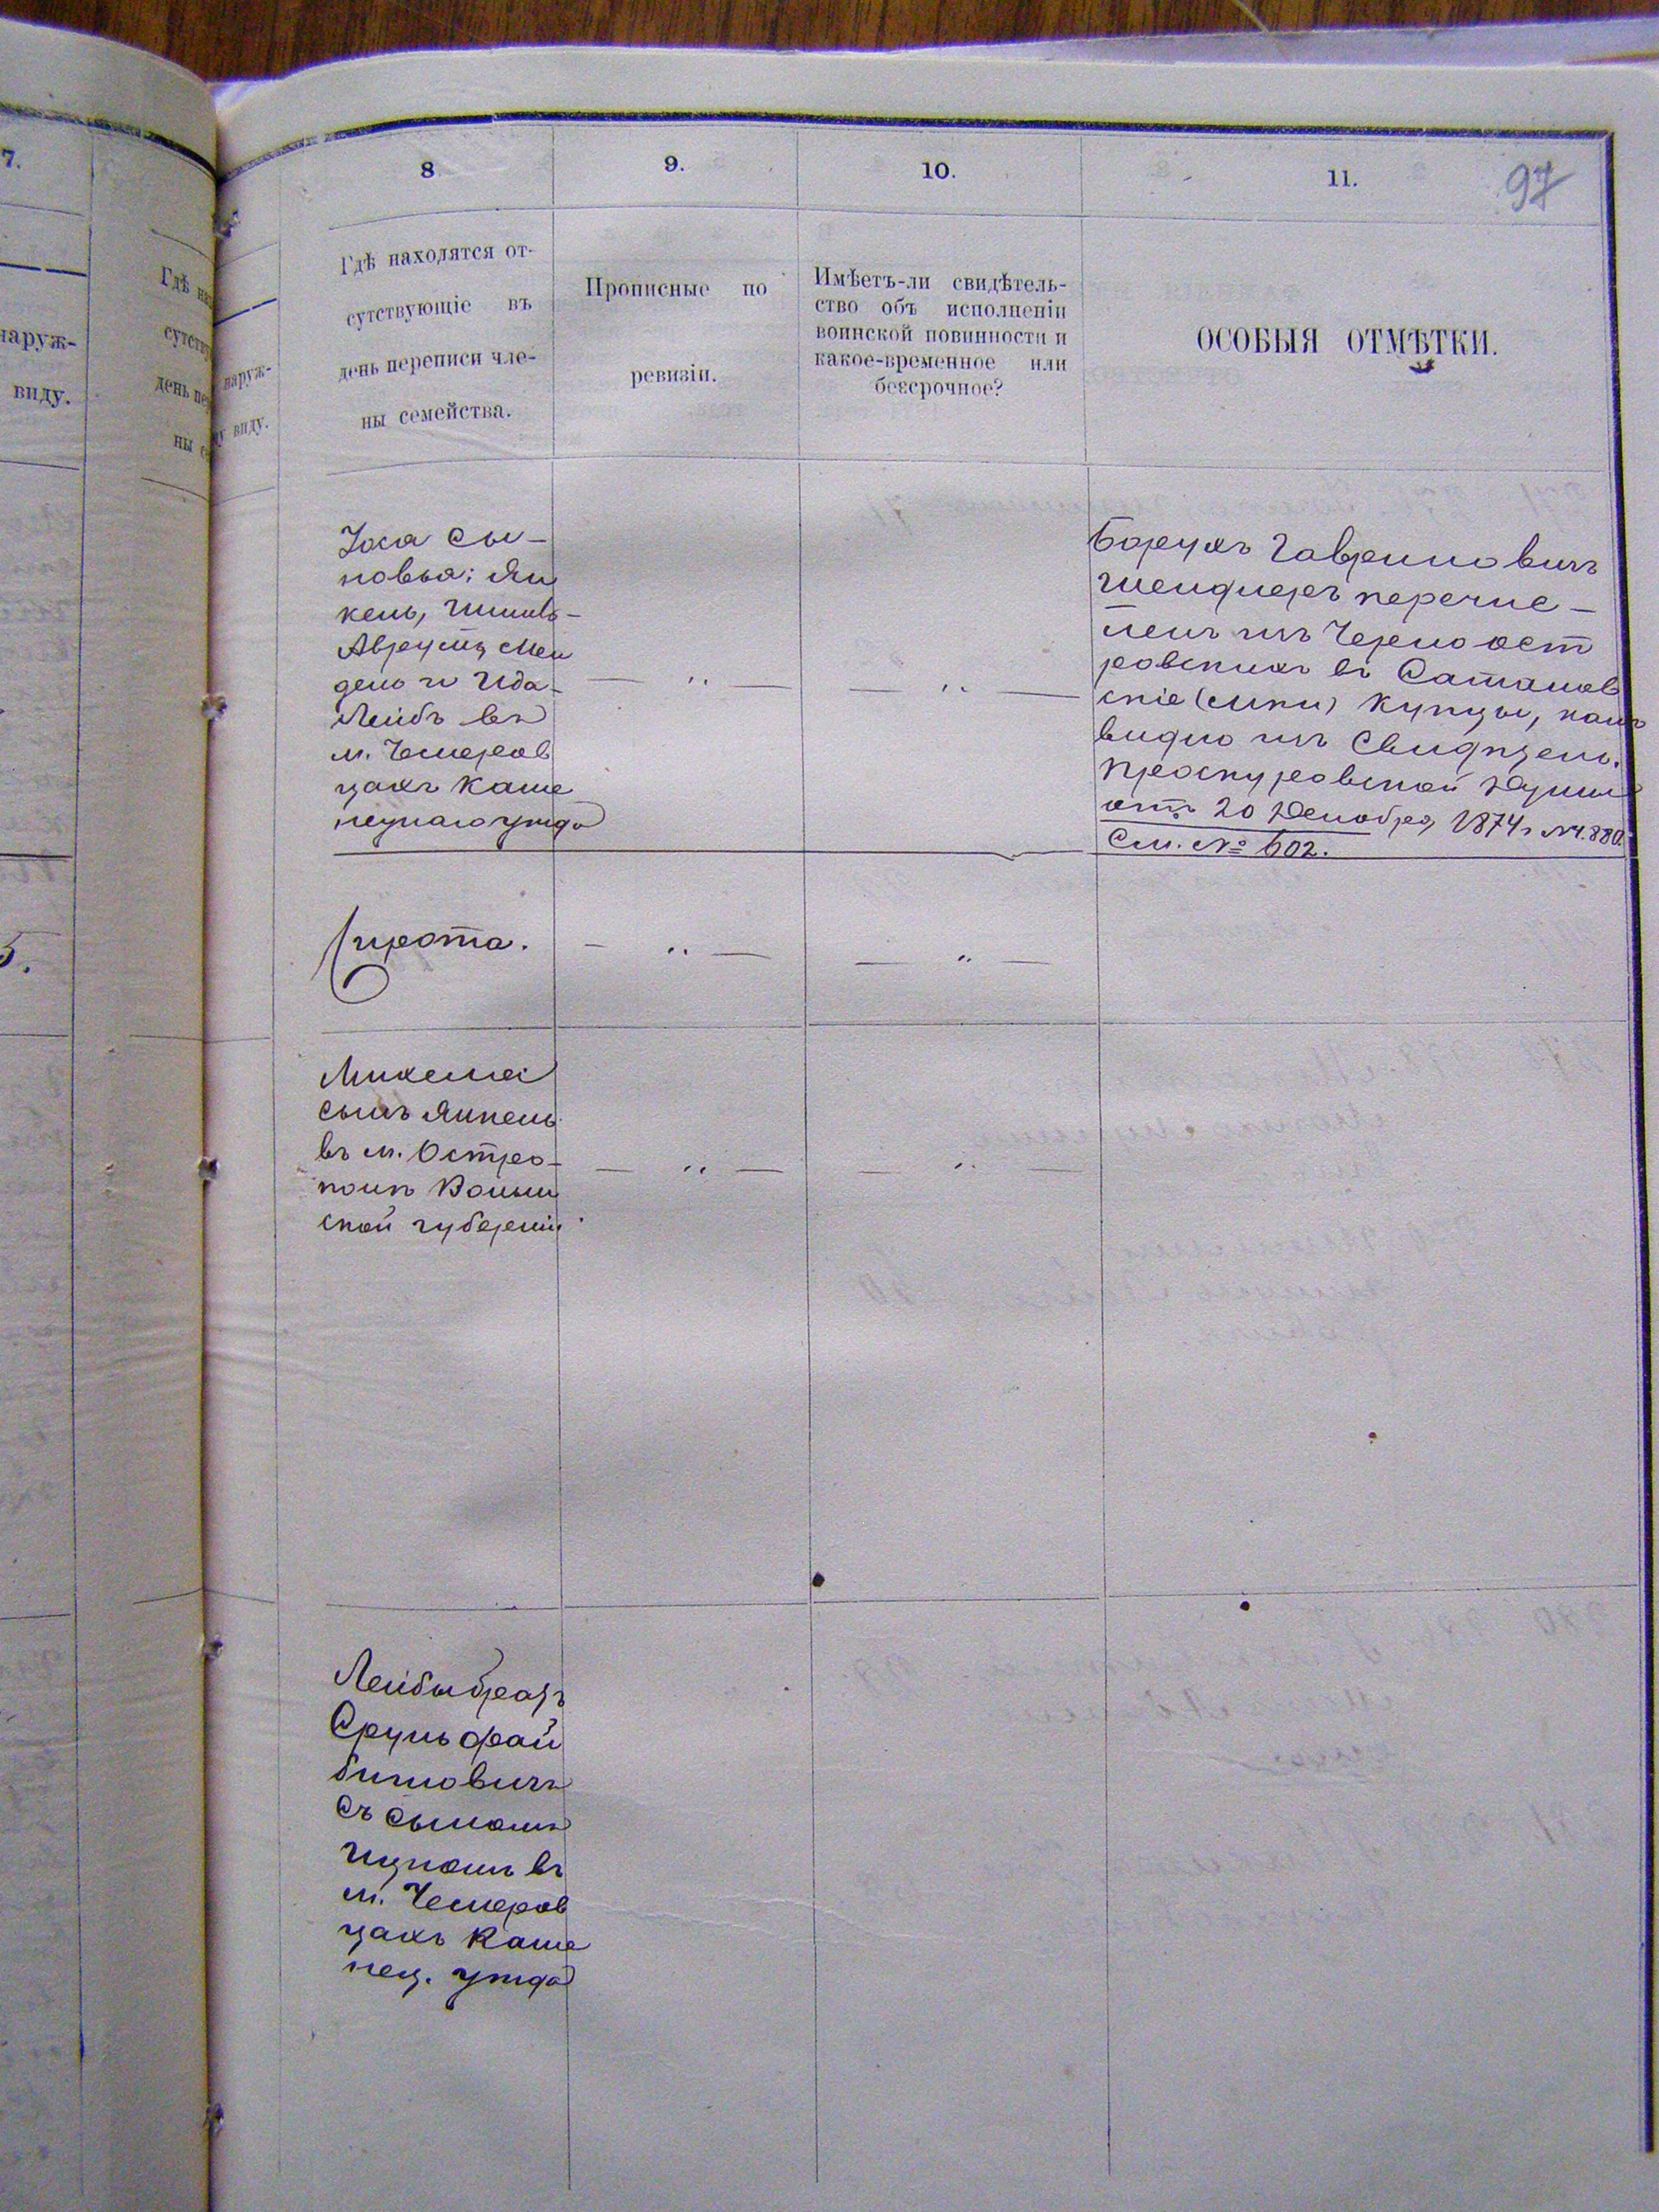 7.
наруж-
виду.
Гдѣ
сутству
день пер
ны с
5.
наруж-
у виду.
8
9.
10.
11.
97
Гдѣ находятся от-
сутствующіе въ
день переписи чле-
ны семейства.
Прописные по
ревизіи.
Имѣетъ-ли свидѣтель-
ство объ исполненіи
воинской повинности и
какое-временное или
безсрочное?
ОСОБЫЯ ОТМѢТКИ.
сы-
новья: Ян
кель,
Мен
дель и
Лейбъ въ
м. Чемеров
цахъ Каме
нецкаго уѣзда
— „ —
— „ —
Борухъ Гавриловичъ
перечис-
ленъ изъ Черноост
ровскихъ въ Сатанов
скіе купцы, какъ
видно изъ Свидѣтель.
Проскуровской Думы
отъ 20 Декабря 1874 г. № 4.880.
См. № 602.
Сирота.
— „ —
— „ —
сынъ Янкель
въ м. Остро-
полѣ Волын
ской губерніи.
— „ —
— „ —
Лейбы братъ
Сруль Фай
бишовичъ
съ сыномъ
Ицкомъ въ
м. Чемеров
цахъ Каме
нец. уѣзда